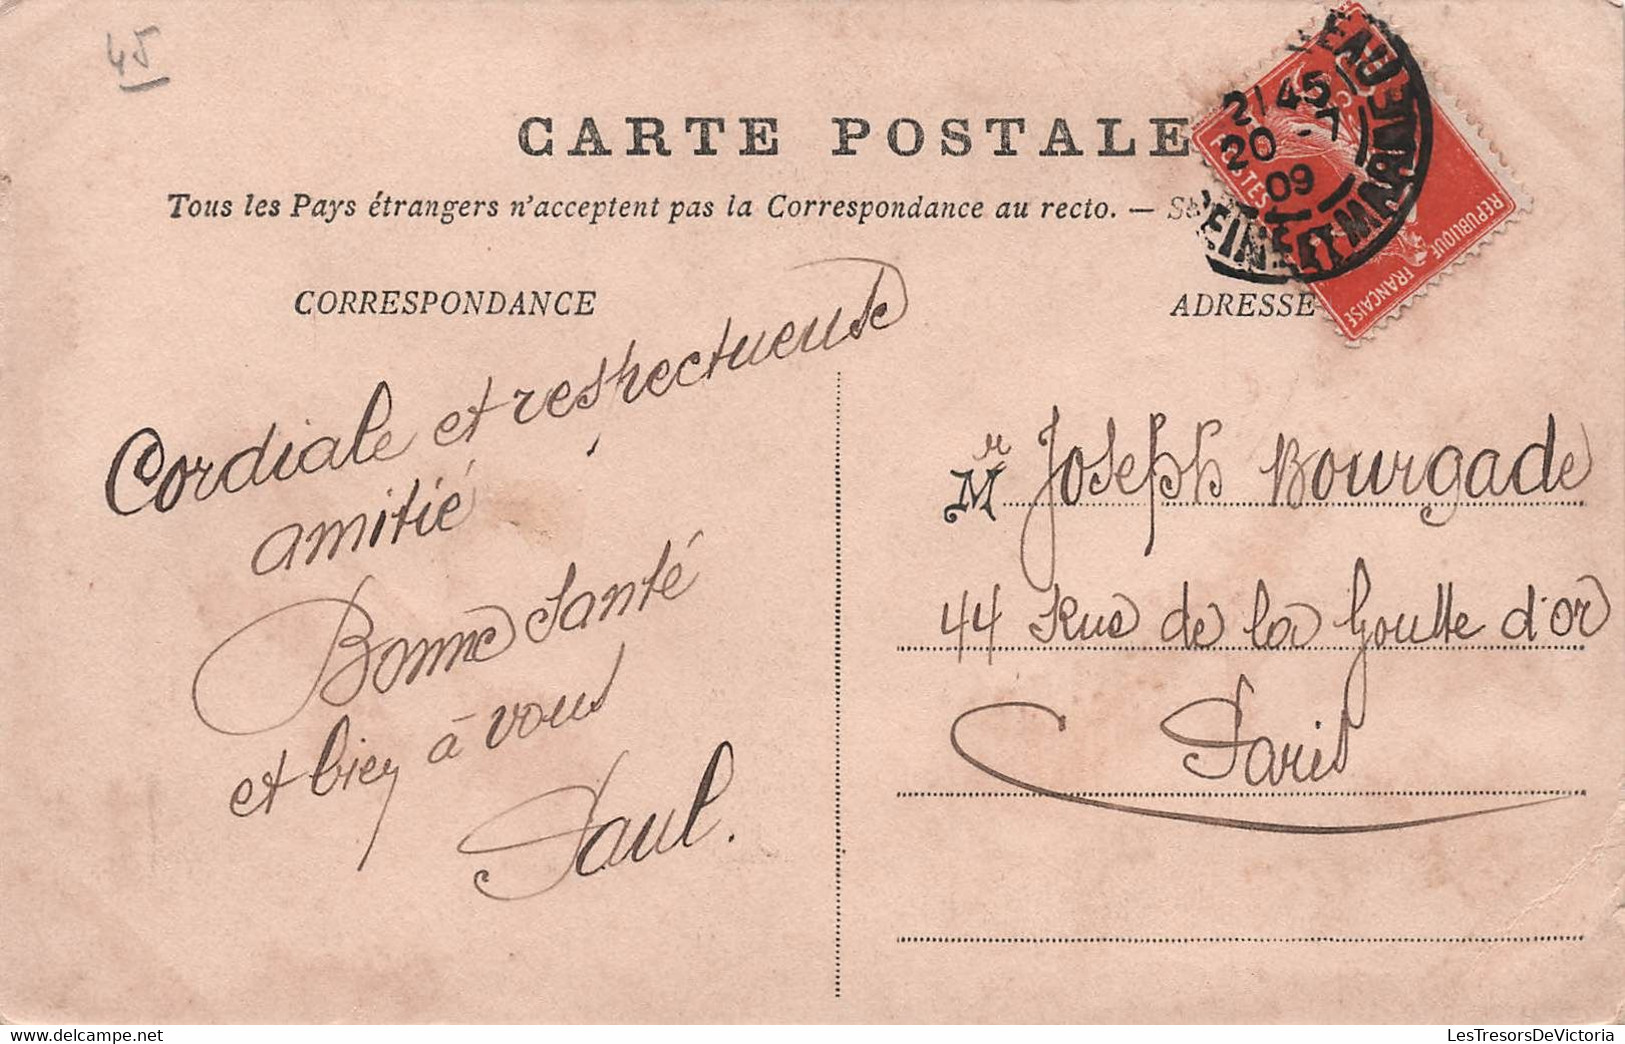 45
CARTE POSTALE
Tous les Pays étrangers n'acceptent pas la Correspondance au recto. —
EAU
21 45
20 -7
09
SEINE ET MARNE
POSTES
REPUBLIQUE FRANÇAISE
CORRESPONDANCE
ADRESSE
Cordiale et respectueuse
amitié
Bonne Santé
et bien à vous
Paul.
Mr Joseph Bourgade
44 Rue de la Goutte d'or
Paris
LesTresorsDeVictoria